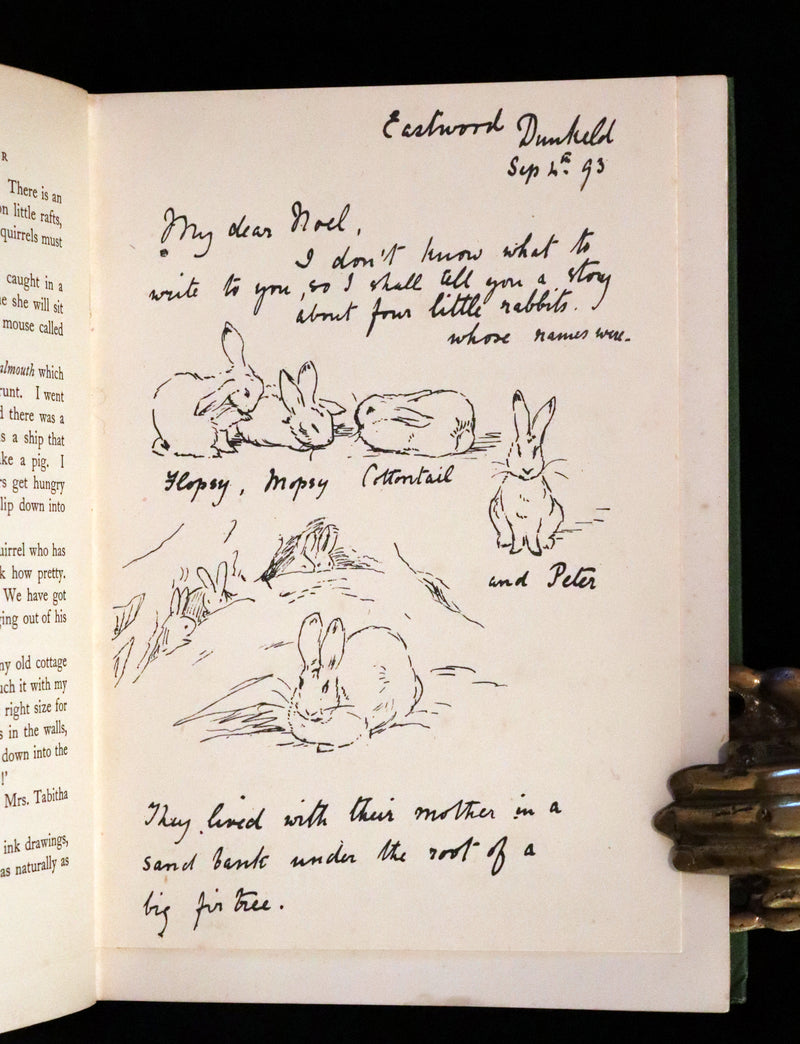 R
There is an
on little rafts,
quirrels must
caught in a
e she will sit
mouse called
almouth which
runt. I went
d there was a
s a ship that
ake a pig. I
rs get hungry
lip down into
uirrel who has
k how pretty.
We have got
ging out of his
ny old cottage
uch it with my
right size for
s in the walls,
down into the
!'
Mrs. Tabitha
ink drawings,
as naturally as
Eastwood Dunkeld
Sep 4th 93
My dear Noel,
I don't know what to
write to you, so I shall tell you a story
about four little rabbits.
whose names were.
Flopsy, Mopsy Cottontail
and Peter
They lived with their mother in a
sand bank under the root of a
big fir tree.